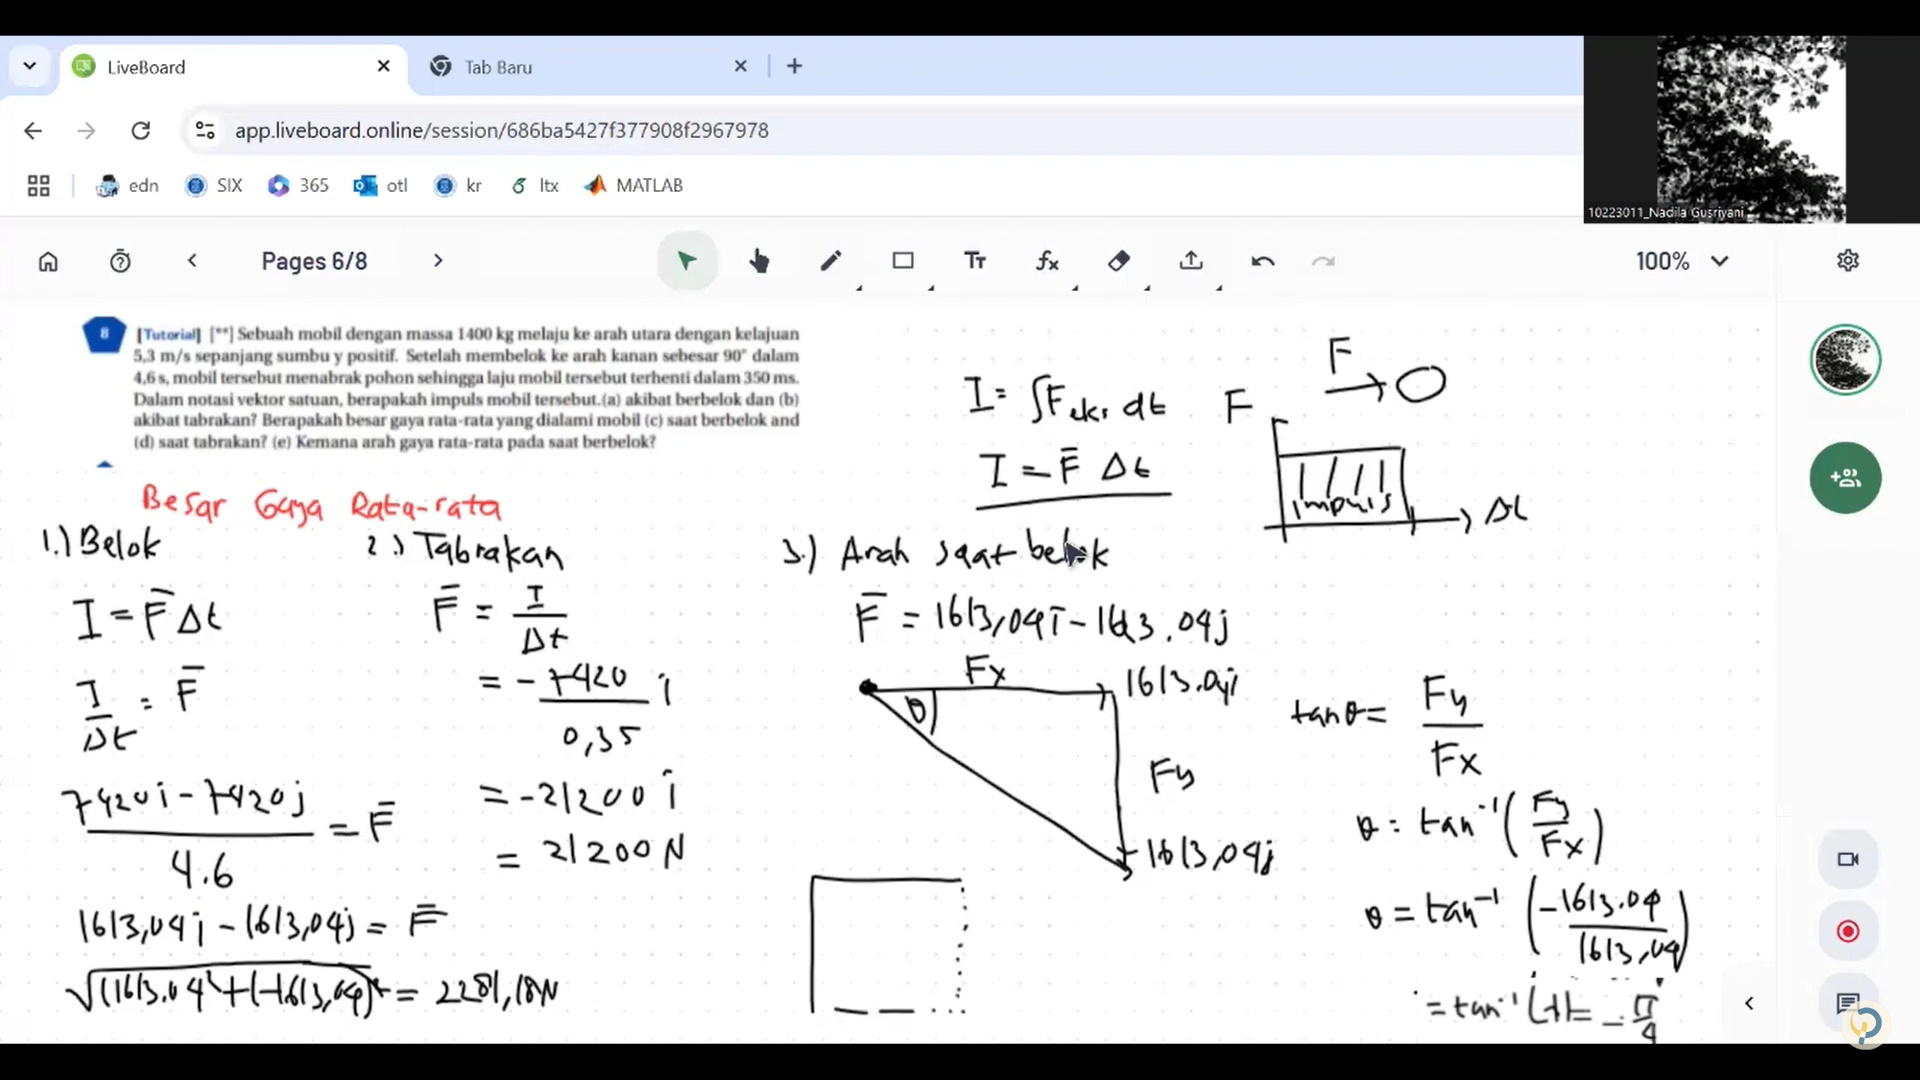 LiveBoard
Tab Baru
app.liveboard.online/session/686ba5427f377908f2967978
edn SIX 365 otl kr ltx MATLAB
10223011_Nadila Gusriyani
Pages 6/8
Tт
fx
100%
8
[Tutorial] [**] Sebuah mobil dengan massa 1400 kg melaju ke arah utara dengan kelajuan
5,3 m/s sepanjang sumbu y positif. Setelah membelok ke arah kanan sebesar 90° dalam
4,6 s, mobil tersebut menabrak pohon sehingga laju mobil tersebut terhenti dalam 350 ms.
Dalam notasi vektor satuan, berapakah impuls mobil tersebut.(a) akibat berbelok dan (b)
akibat tabrakan? Berapakah besar gaya rata-rata yang dialami mobil (c) saat berbelok and
(d) saat tabrakan? (e) Kemana arah gaya rata-rata pada saat berbelok?
I = ∫F eks dt
I = F̄ Δt
F
F
impuls
Δt
Besar Gaya Rata-rata
1.) Belok
I = F̄ Δt
I/Δt = F̄
7420i - 7420j / 4.6 = F̄
1613,04i - 1613,04j = F̄
√(1613.04² + (-1613,04)² = 2281,18N
2.) Tabrakan
F̄ = I/Δt
= - 7420/0,35 i
= -21200 i
= 21200 N
3.) Arah saat belok
F̄ = 1613,04i - 1613.04j
Fx
1613.04i
θ
Fy
1613,04j
tanθ = Fy/Fx
θ = tan⁻¹ (Fy/Fx)
θ = tan⁻¹ (-1613.04/1613,04)
= tan⁻¹ (-1) = - π/4